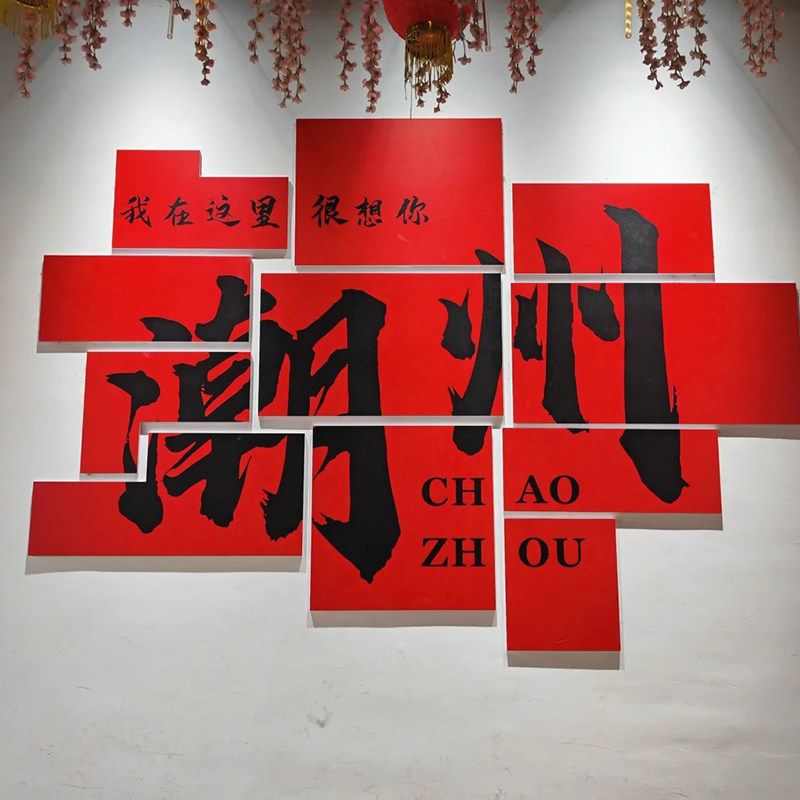 我在这里 很想你
潮州
CHAO
ZHOU